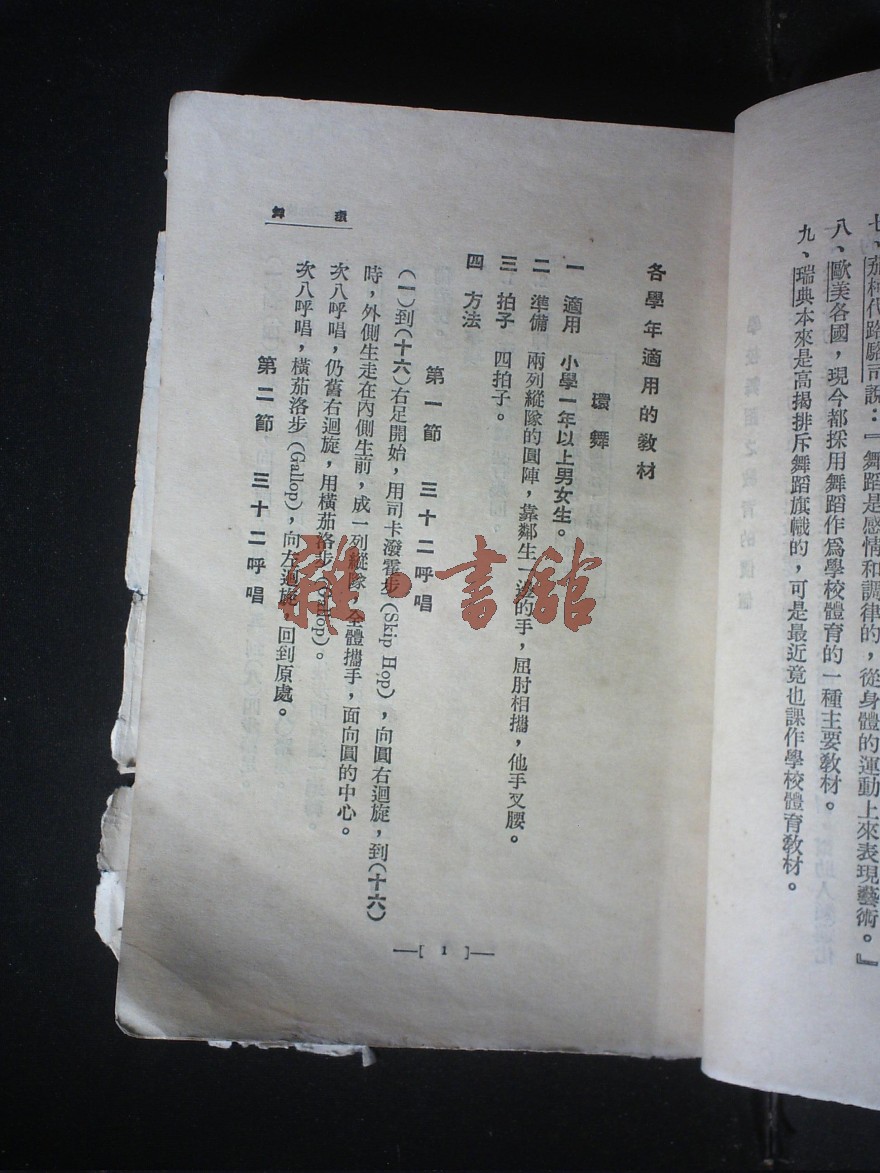 七、茄柯代路駱司說：『舞蹈是感情和調律的，從身體的運動上來表現藝術。』
八、歐美各國，現今都採用舞蹈作爲學校體育的一種主要教材。
九、瑞典本來是高揭排斥舞蹈旗幟的，可是最近竟也課作學校體育教材。
各學年適用的教材
環舞
一 適用 小學一年以上男女生。
二 準備 兩列縱隊的圓陣，靠鄰生一邊的手，屈肘相攜，他手叉腰。
三 拍子 四拍子。
四 方法
第一節 三十二呼唱
(一)到(十六)右足開始，用司卡潑霍步(Skip Hop)，向圓右迴旋，到(十六)
時，外側生走在內側生前，成一列縱隊，全體攜手，面向圓的中心。
次八呼唱，仍舊右迴旋，用橫茄洛步(Gallop)。
次八呼唱，橫茄洛步(Gallop)，向左迴旋，回到原處。
第二節 三十二呼唱
環舞
—[ 1 ]—
雜·書館